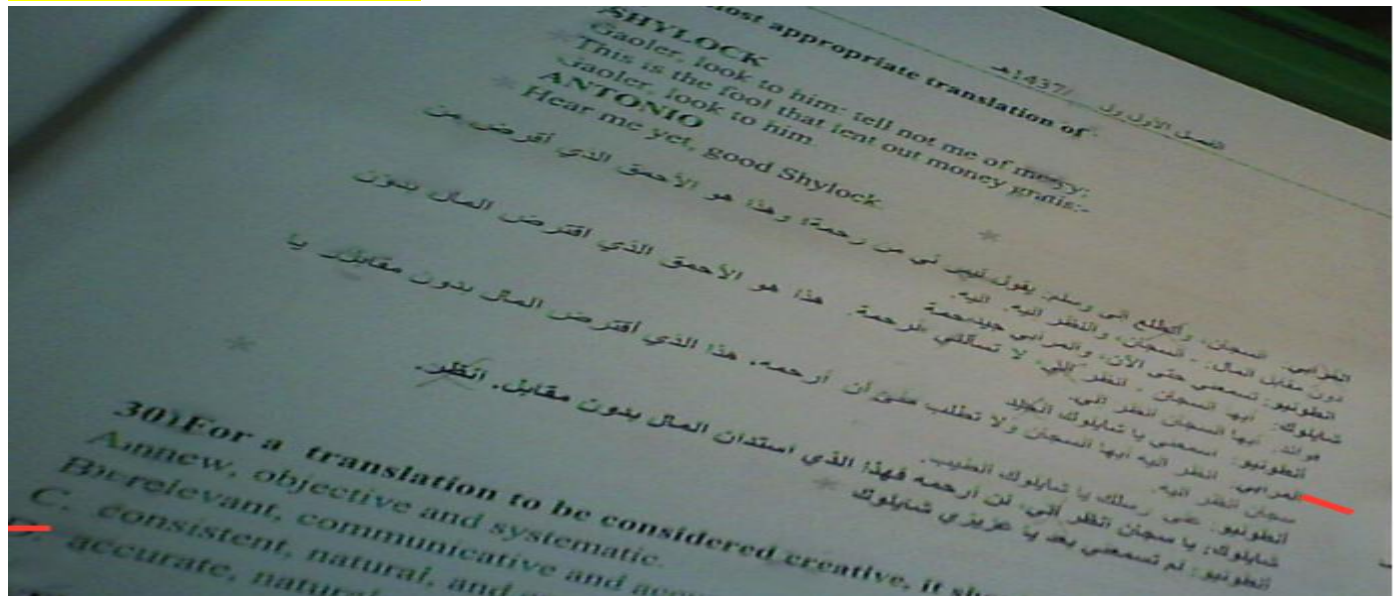 الفصل الأول 1437/هـ
most appropriate translation of
SHYLOCK
Gaoler, look to him: tell not me of mercy;
This is the fool that lent out money gratis:-
Gaoler, look to him
ANTONIO
Hear me yet, good Shylock
المرابي: السجان، وأتطلع الى وسلم: يقول ليس لي من رحمة؛ وهذا هو الأحمق الذي أقرض من
دون مقابل المال. - السجان، والنظر اليه. اليه.
انطونيو: تسمعني حتى الآن، والمرابي جيد
شايلوك: أيها السجان . انظر إلي، لا تسألني الرحمة. هذا هو الأحمق الذي اقترض المال بدون
فوائد. أيها السجان انظر الي.
أنطونيو: اسمعني يا شايلوك
المرابي: انظر اليه أيها السجان ولا تطلب مني أن ارحمه. هذا الذي أقترض المال بدون مقابل يا
سجان انظر اليه.
أنطونيو: على رسلك يا شايلوك الطيب.
شايلوك: يا سجان انظر إلي، لن ارحمه فهذا الذي استدان المال بدون مقابل. انظر.
أنطونيو: لم تسمعني بعد يا عزيزي شايلوك
30) For a translation to be considered creative, it
A. new, objective and systematic.
B. relevant, communicative and
C. consistent, natural, and
D. accurate, natural